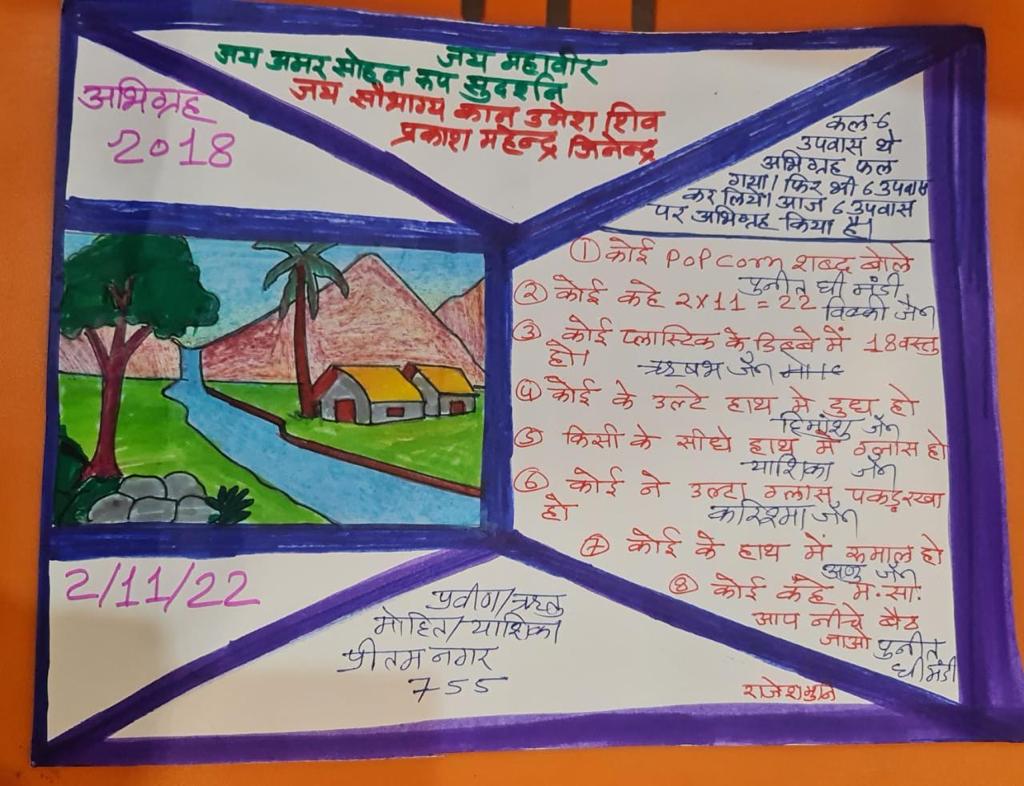 जय महावीर
जय अमर मोहन रूप सुदर्शन
जय सौभाग्य कान उमेश शिव
प्रकाश महेन्द्र जिनेन्द्र
अभिग्रह
2018
कल 6
उपवास थे
अभिग्रह फल
गया। फिर भी 6 उपवास
कर लिये। आज 6 उपवास
पर अभिग्रह किया है।
① कोई PoPCorn शब्द बोले
पुनीत घी मंडी
② कोई कहे 2x11 = 22
विक्की जैन
③ कोई प्लास्टिक के डिब्बे में 18 वस्तु
हो।
ऋषभ जैन
④ कोई के उल्टे हाथ मे दुध हो
हिमांशु जैन
⑤ किसी के सीधे हाथ में ग्लास हो
याशिका जैन
⑥ कोई ने उल्टा ग्लास पकड़ रखा
हो
करिश्मा जैन
⑦ कोई के हाथ में रूमाल हो
जैन
⑧ कोई कहे म.सा.
आप नीचे बैठ
जाओ
पुनीत
घी मंडी
2/11/22
प्रवीण/ऋतु
मोहित/याशिका
प्रीतम नगर
755
राजेश मुनि